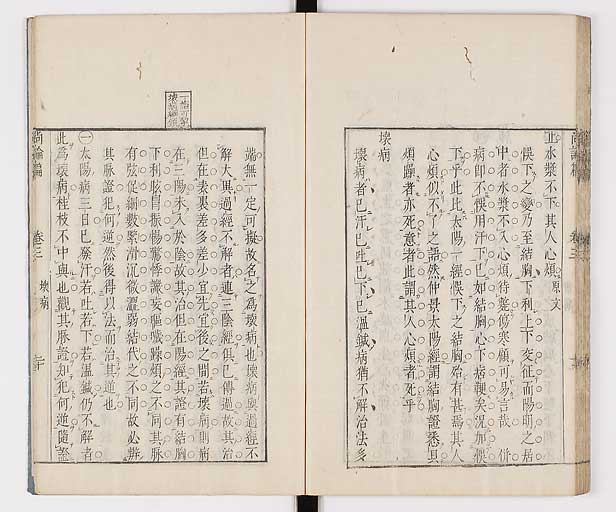 止水漿不下其人心煩原文
悞下之變乃至結胸下利上下交征而陽明之居
中者水漿不入心煩待斃傷寒顧可易言哉 併
病即不悞用汗下已如結胸心下痞鞕矣況加悞
下乎此比太陽一經悞下之結胸殆有甚焉其人
心煩似不了之語然仲景太陽經謂結胸證悉具
煩躁者亦死意者此謂其人心煩者死乎
壞病
壞病者已汗已吐已下已溫鍼病猶不解治法多
端無一定可擬故名之為壞病也壞病與過經不
解大異過經不解者連三陰經俱已傳過故其治
但在表裏差多差少宜先宜後之間若壞病則病
在三陽未入於陰故其治但在陽經其證有結胸
下利眩冒振惕驚悸譫妄嘔噦躁煩之不同其脈
有弦促細數緊滑沉微濇弱結代之不同故必辨
其脈證犯何逆然後得以法而治其逆也
一太陽病三日已發汗若吐若下若溫鍼仍不解者
此為壞病桂枝不中與也觀其脈證知犯何逆隨證
尚論篇
卷三
壞病